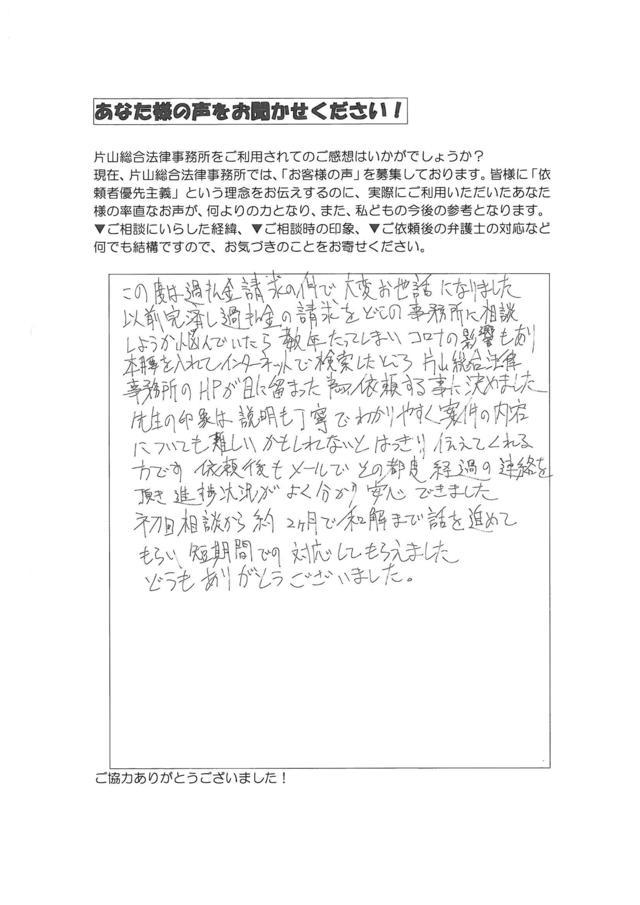 あなた様の声をお聞かせください！
片山総合法律事務所をご利用されてのご感想はいかがでしょうか？
現在、片山総合法律事務所では、「お客様の声」を募集しております。皆様に「依
頼者優先主義」という理念をお伝えするのに、実際にご利用いただいたあなた
様の率直なお声が、何よりの力となり、また、私どもの今後の参考となります。
▼ご相談にいらした経緯、▼ご相談時の印象、▼ご依頼後の弁護士の対応など
何でも結構ですので、お気づきのことをお寄せください。
この度は過払金請求の件で大変お世話になりました
以前完済し過払金の請求をどこの事務所に相談
しようか悩んでいたら数年たってしまいコロナの影響もあり
本腰を入れてインターネットで検索したところ片山総合法律
事務所のHPが目に留まった為依頼する事に決めました
先生の印象は説明も丁寧でわかりやすく案件の内容
についても難しいかもしれないとはっきり伝えてくれる
方です 依頼後もメールでその都度経過の連絡を
頂き進捗状況がよく分かり安心できました
初回相談から約2ヶ月で和解まで話を進めて
もらい短期間での対応してもらえました
どうもありがとうございました。
ご協力ありがとうございました！